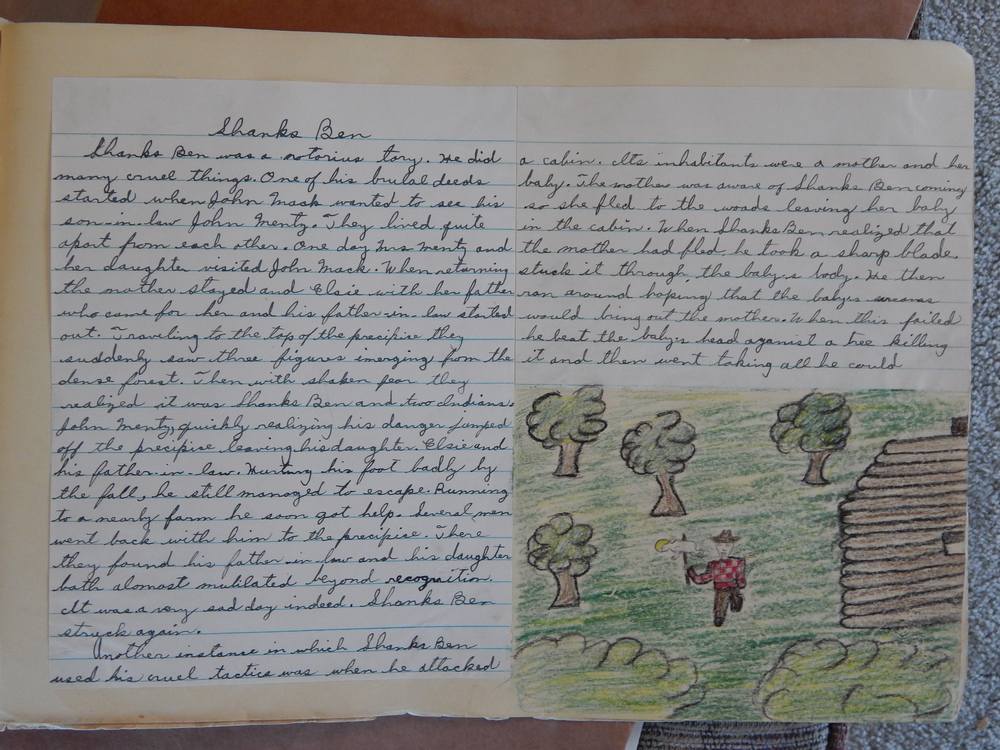 Shanks Ben
Shanks Ben was a notorius tory. He did
many cruel things. One of his brutal deeds
started when John Mack wanted to see his
son-in-law John Mentz. They lived quite
apart from each other. One day Mrs Mentz and
her daughter visited John Mack. When returning
the mother stayed and Elsie with her father
who came for her and his father-in-law started
out. Traveling to the top of the precipise they
suddenly saw three figures imerging from the
dense forest. Then with shaken fear they
realized it was Shanks Ben and two Indians.
John Mentz, quickly realizing his danger jumped
off the precipise leaving his daughter. Elsie and
his father-in-law. Hurting his foot badly by
the fall, he still managed to escape. Running
to a nearly farm he soon got help. Several men
went back with him to the precipise. There
they found his father-in-law and his daughter
both alomost mutilated beyond recognition.
It was a very sad day indeed. Shanks Ben
struck again.
Another instance in which Shanks Ben
used his cruel tactics was when he attacked
a cabin. Its inhabitants were a mother and her
baby. The mother was aware of Shanks Ben coming
so she fled to the woods leaving her baby
in the cabin. When Shanks Ben realized that
the mother had fled, he took a sharp blade,
stuck it through the baby,s body. He then
ran around hoping that the baby,s screams
would bring out the mother. When this failed
he beat the baby,s head aganist a tree killing
it and then went taking all he could